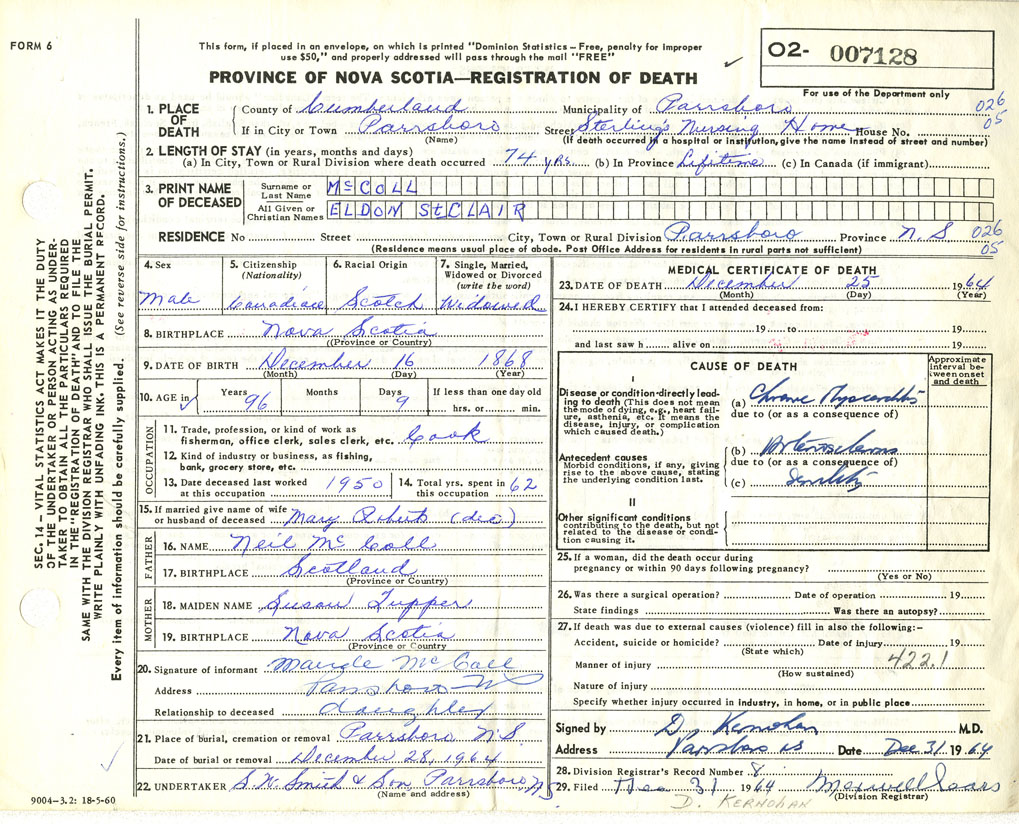 FORM 6
This form, if placed in an envelope, on which is printed "Dominion Statistics – Free, penalty for improper
use $50," and properly addressed will pass through the mail "FREE"
PROVINCE OF NOVA SCOTIA—REGISTRATION OF DEATH
O2- 007128
For use of the Department only
SEC. 14 – VITAL STATISTICS ACT MAKES IT THE DUTY
OF THE UNDERTAKER OR PERSON ACTING AS UNDER-
TAKER TO OBTAIN ALL THE PARTICULARS REQUIRED
IN THE "REGISTRATION OF DEATH" AND TO FILE THE
SAME WITH THE DIVISION REGISTRAR WHO SHALL ISSUE THE BURIAL PERMIT.
WRITE PLAINLY WITH UNFADING INK. THIS IS A PERMANENT RECORD.
Every item of information should be carefully supplied. (See reverse side for instructions.)
1. PLACE OF DEATH
County of Cumberland Municipality of Parrsboro 026
If in City or Town Parrsboro Street Sterling's Nursing Home House No. 05
(Name) (If death occurred in a hospital or institution, give the name instead of street and number)
2. LENGTH OF STAY (in years, months and days)
(a) In City, Town or Rural Division where death occurred 74 yrs. (b) In Province Lifetime (c) In Canada (if immigrant)
3. PRINT NAME OF DECEASED
Surname or Last Name McCOLL
All Given or Christian Names ELDON StCLAIR
RESIDENCE No Street City, Town or Rural Division Parrsboro Province N.S 026
(Residence means usual place of abode. Post Office Address for residents in rural parts not sufficient) 05
4. Sex
Male
5. Citizenship
(Nationality)
Canadian
6. Racial Origin
Scotch
7. Single, Married,
Widowed or Divorced
(write the word)
Widowed
8. BIRTHPLACE Nova Scotia
(Province or Country)
9. DATE OF BIRTH December 16 1868
(Month) (Day) (Year)
10. AGE in Years Months Days If less than one day old
96 9 hrs. or min.
OCCUPATION
11. Trade, profession, or kind of work as
fisherman, office clerk, sales clerk, etc. Cook
12. Kind of industry or business, as fishing,
bank, grocery store, etc.
13. Date deceased last worked
at this occupation 1950
14. Total yrs. spent in
this occupation 62
15. If married give name of wife
or husband of deceased Mary Roberts (dec)
FATHER
16. NAME Neil McColl
17. BIRTHPLACE Scotland
(Province or Country)
MOTHER
18. MAIDEN NAME Susan Tupper
19. BIRTHPLACE Nova Scotia
(Province or Country)
20. Signature of informant Maude McCall
Address Parrsboro NS
Relationship to deceased daughter
21. Place of burial, cremation or removal Parrsboro N.S.
Date of burial or removal December 28, 1964
22. UNDERTAKER S. W. Smith & Son, Parrsboro, NS
(Name and address)
9004–3.2: 18-5-60
MEDICAL CERTIFICATE OF DEATH
23. DATE OF DEATH December 25 1964
(Month) (Day) (Year)
24. I HEREBY CERTIFY that I attended deceased from:
19 to 19
and last saw h alive on 19
CAUSE OF DEATH
Approximate
interval be-
tween onset
and death
I
Disease or condition directly lead-
ing to death (This does not mean
the mode of dying, e.g., heart fail-
ure, asthenia, etc. It means the
disease, injury, or complication
which caused death.)
(a) Chronic Myocarditis
due to (or as a consequence of)
Antecedent causes
Morbid conditions, if any, giving
rise to the above cause, stating
the underlying condition last.
(b) Arteriosclerosis
due to (or as a consequence of)
(c) Senility
II
Other significant conditions
contributing to the death, but not
related to the disease or condi-
tion causing it.
25. If a woman, did the death occur during
pregnancy or within 90 days following pregnancy?
(Yes or No)
26. Was there a surgical operation? Date of operation 19
State findings Was there an autopsy?
27. If death was due to external causes (violence) fill in also the following:–
Accident, suicide or homicide? Date of injury 19
(State which)
Manner of injury 422.1
(How sustained)
Nature of injury
Specify whether injury occurred in industry, in home, or in public place
Signed by D. Kernohan M.D.
Address Parrsboro NS Date Dec 31 1964
28. Division Registrar's Record Number 8
29. Filed Dec 31 1964 Maxwell
(Division Registrar)
D. KERNOHAN